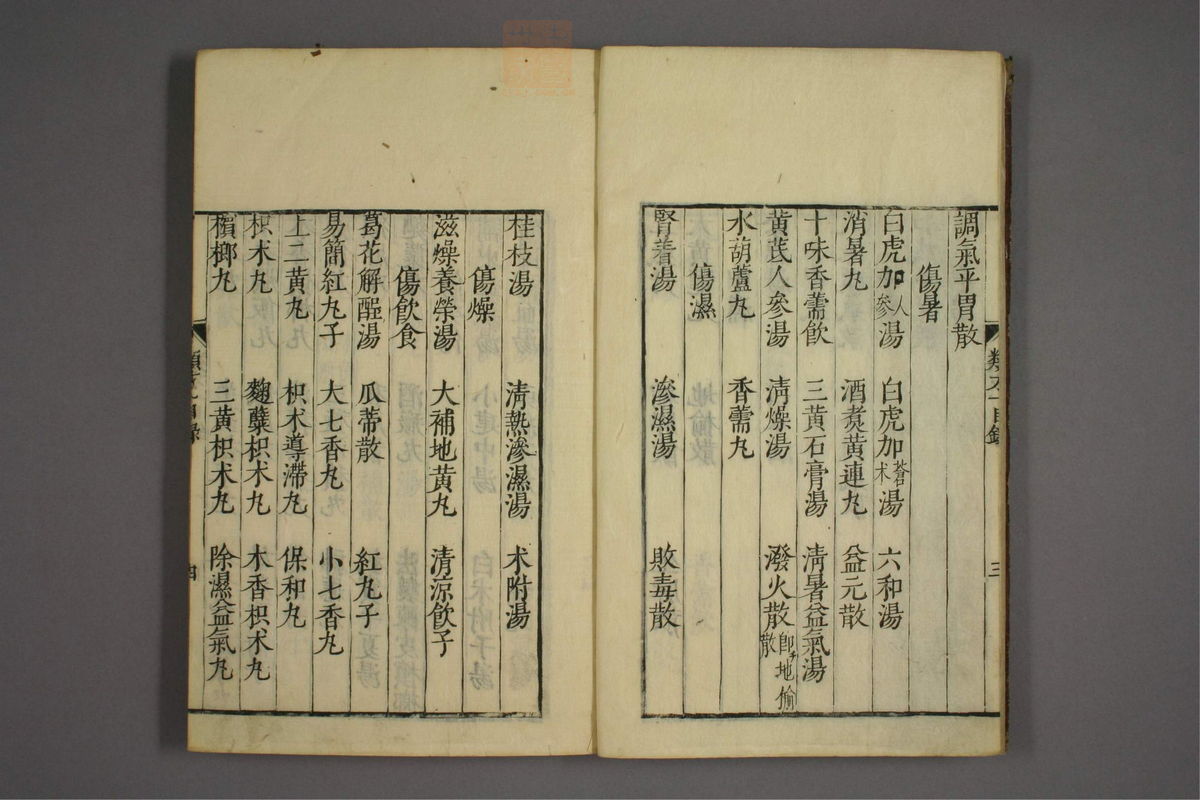 調氣平胃散
傷暑
白虎加人參湯 白虎加蒼术湯 六和湯
消暑丸 酒煑黄連丸 益元散
十味香薷飲 三黄石膏湯 清暑益氣湯
黄芪人參湯 清燥湯 潑火散即地愉散
水葫蘆丸 香薷丸
傷濕
腎着湯 滲濕湯 敗毒散
桂枝湯 清熱滲濕湯 术附湯
傷燥
滋燥養榮湯 大補地黄丸 清涼飲子
傷飲食
葛花解酲湯 瓜蒂散 紅丸子
易簡紅丸子 大七香丸 小七香丸
上二黄丸 枳术導滯丸 保和丸
枳术丸 麴蘖枳术丸 木香枳术丸
檳榔丸 三黄枳术丸 除濕益氣丸